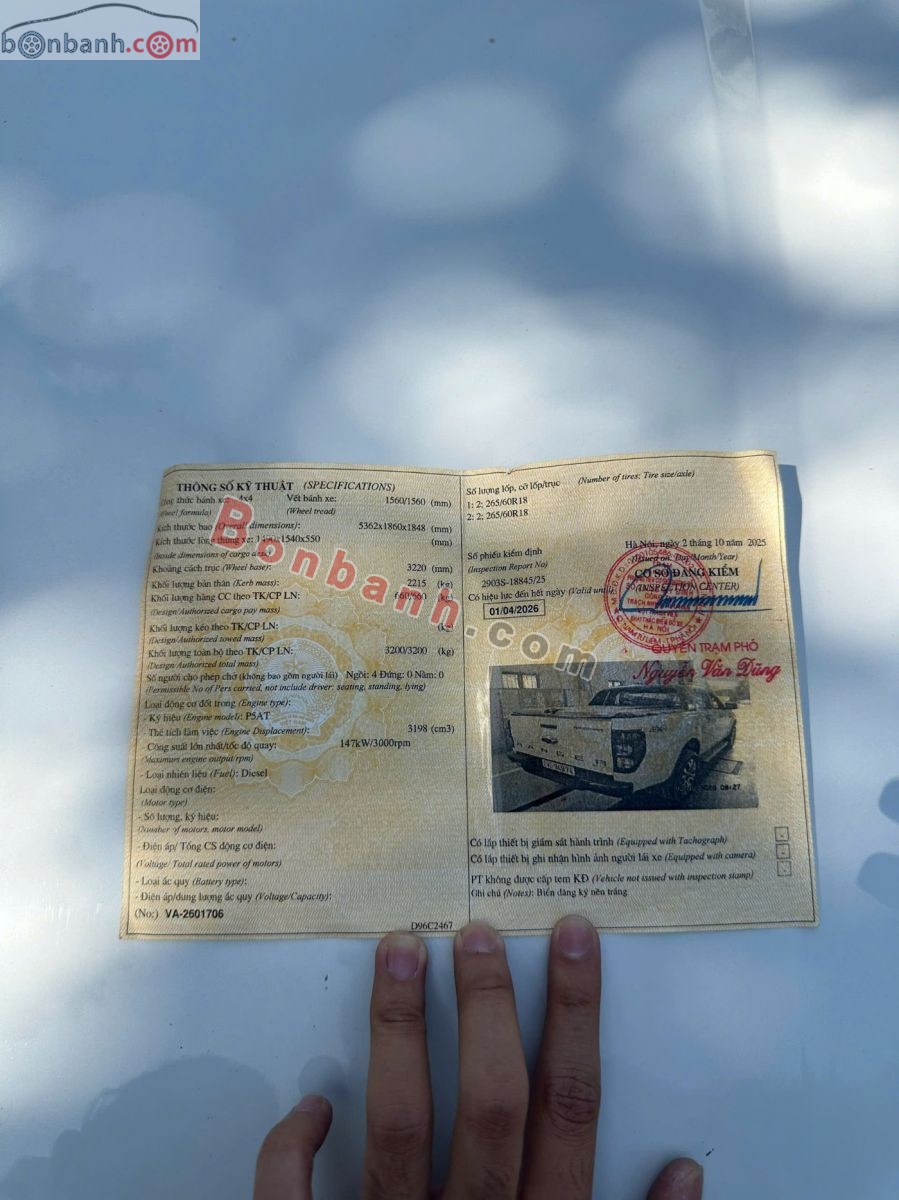 bonbanh.com
THÔNG SỐ KỸ THUẬT (SPECIFICATIONS)
thức bánh 4x4 Vết bánh xe: 1560/1560 (mm)
(Wheel formula) (Wheel tread)
Kích thước bao (Overall dimensions): 5362x1860x1848 (mm)
Kích thước lòng thùng xe: 1490x1540x550 (mm)
(Inside dimensions of cargo area)
Khoảng cách trục (Wheel base): 3220 (mm)
Khối lượng bản thân (Kerb mass): 2215 (kg)
Khối lượng hàng CC theo TK/CP LN: 660/660 (kg)
(Design/Authorized cargo pay mass)
Khối lượng kéo theo TK/CP LN: (kg)
(Design/Authorized towed mass)
Khối lượng toàn bộ theo TK/CP LN: 3200/3200 (kg)
(Design/Authorized total mass)
Số người cho phép chở (không bao gồm người lái) Ngồi: 4 Đứng: 0 Nằm: 0
(Permissible No of Pers carried, not include driver: seating, standing, lying)
Loại động cơ đốt trong (Engine type):
- Ký hiệu (Engine model): P5AT
- Thể tích làm việc (Engine Displacement): 3198 (cm3)
Công suất lớn nhất/tốc độ quay: 147kW/3000rpm
(Maximum engine output/rpm)
- Loại nhiên liệu (Fuel): Diesel
Loại động cơ điện:
(Motor type)
- Số lượng, ký hiệu:
(Number of motors, motor model)
- Điện áp/ Tổng CS động cơ điện:
(Voltage/ Total rated power of motors)
- Loại ắc quy (Battery type):
- Điện áp/dung lượng ắc quy (Voltage/Capacity):
(No:) VA-2601706
D96C2467
Số lượng lốp, cỡ lốp/trục (Number of tires: Tire size/axle)
1: 2; 265/60R18
2: 2; 265/60R18
Hà Nội, ngày 2 tháng 10 năm 2025
(Issued on: Day/Month/Year)
Số phiếu kiểm định
(Inspection Report No)
CƠ SỞ ĐĂNG KIỂM
(INSPECTION CENTER)
2903S-18845/25
Có hiệu lực đến hết ngày (Valid until)
01/04/2026
HÀ NỘI
QUYỀN TRẠM PHÓ
Nguyễn Văn Dũng
RANGER
Có lắp thiết bị giám sát hành trình (Equipped with Tachograph) -
Có lắp thiết bị ghi nhận hình ảnh người lái xe (Equipped with camera) -
PT không được cấp tem KĐ (Vehicle not issued with inspection stamp) -
Ghi chú (Notes): Biển đăng ký nền trắng
Bonbanh.com